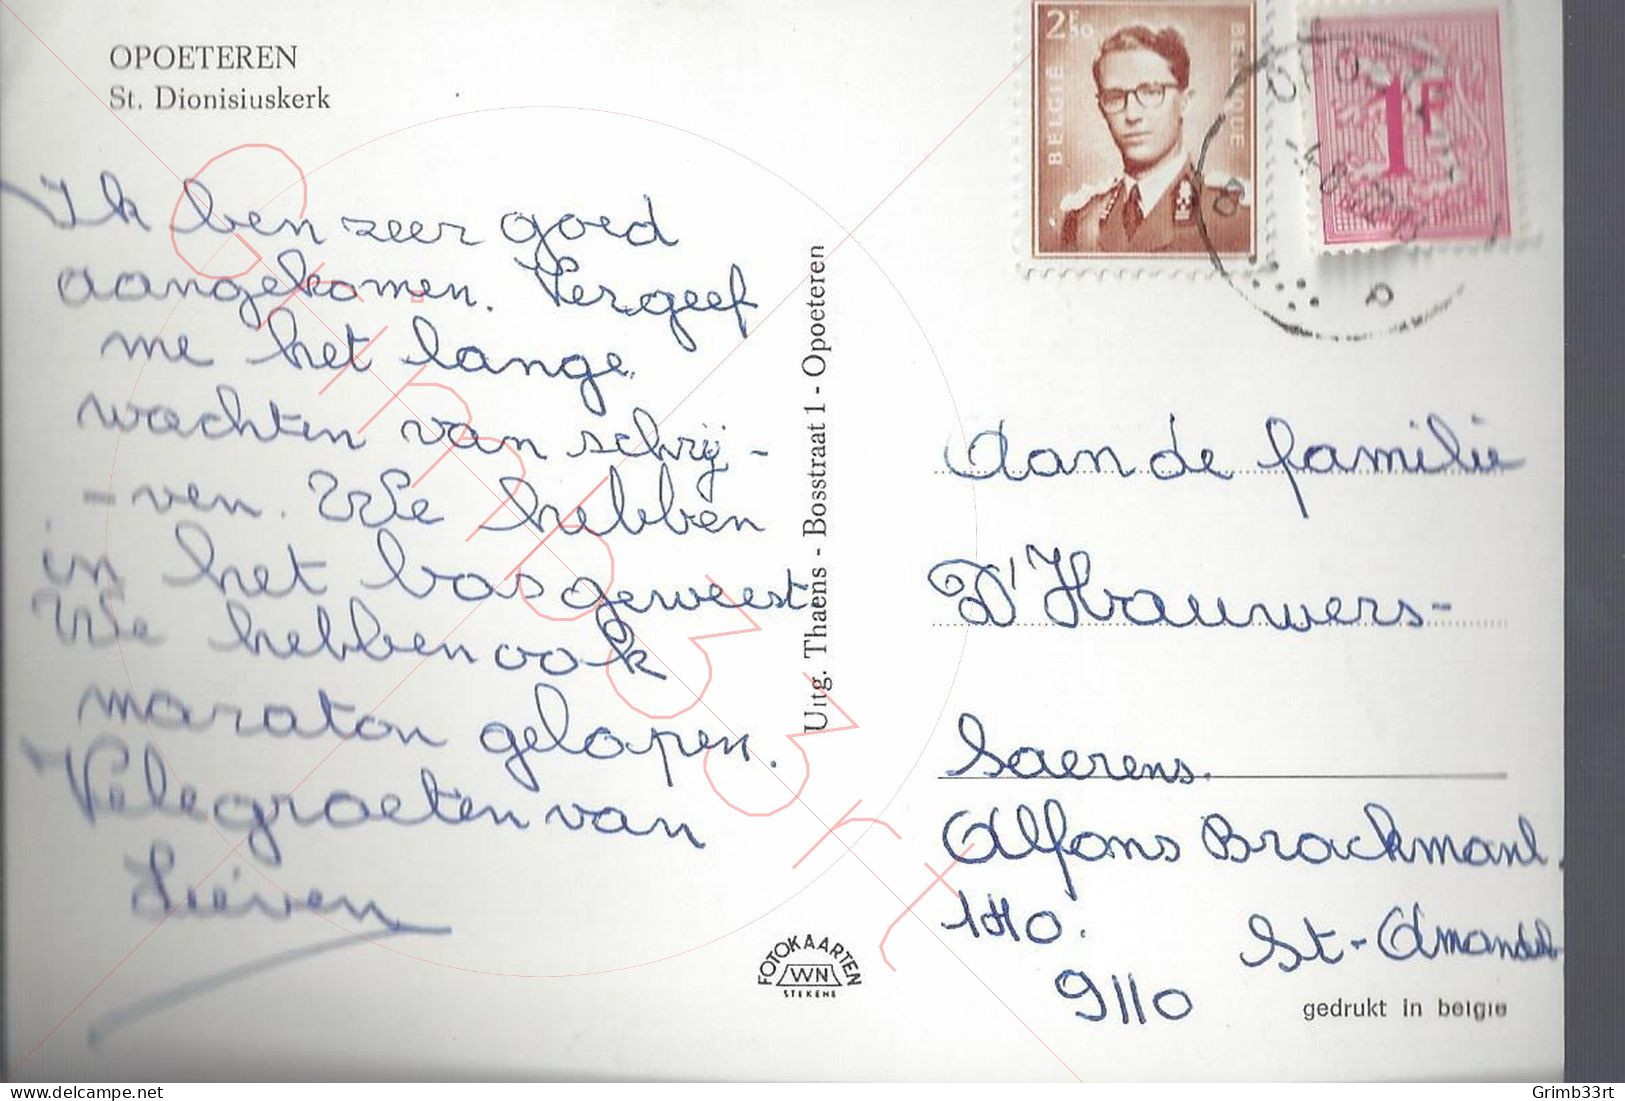 OPOETEREN
St. Dionisiuskerk
Ik ben zeer goed
aangekomen. Vergeef
me het lange
wachten van schrij-
-ven. We hebben
in het bos geweest
We hebben ook
maraton gelopen.
Vele groeten van
Lieven
Uitg. Thaens - Bosstraat 1 - Opoeteren
FOTOKAARTEN
WN
STEKENE
2F50
BELGIË
BELGIQUE
1F
OPO
Aan de familie
D'Hauwers-
Saerens.
Alfons Brackmanl.
140.
St-Amandsb
9110
gedrukt in belgie
Grimb33rt
Grimb33rt